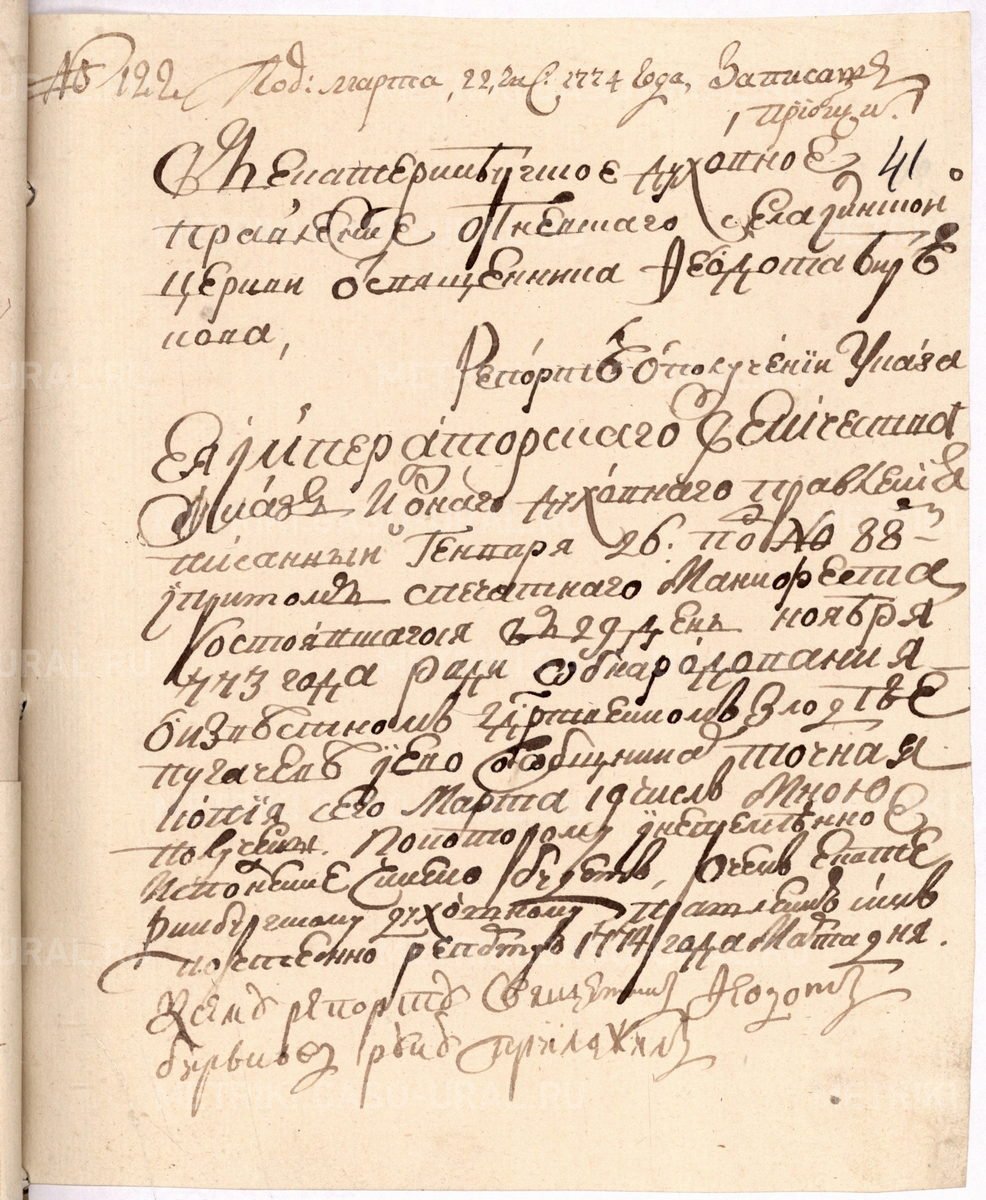 № 122 Под: марта, 22, чис. 1774 года, Записать
и приобщи.
Въ Екатеринбургское духовное 41
правление
церкви священника Федота Бирю
кова,
Репортъ о получении Указа
Ея Императорскаго Величества
Указъ Изонаго духовнаго правления
писанный Генваря 26. под № 88 м
и притомъ с печатнаго Манифеста
состоявшагося въ 29 день ноября
773 года ради обнародования
о известномъ злодѣе
пугачевѣ и ево сообщника точная
копия сего Марта 19 числа Мною
получена. По которому и непременное
исполнение чинено будетъ, О чемъ Екате
ринбургскому духовному правлению симъ
почтенно репортуетъ 1774 года Марта дня.
К сему репорту Священникъ Федотъ
руку приложилъ